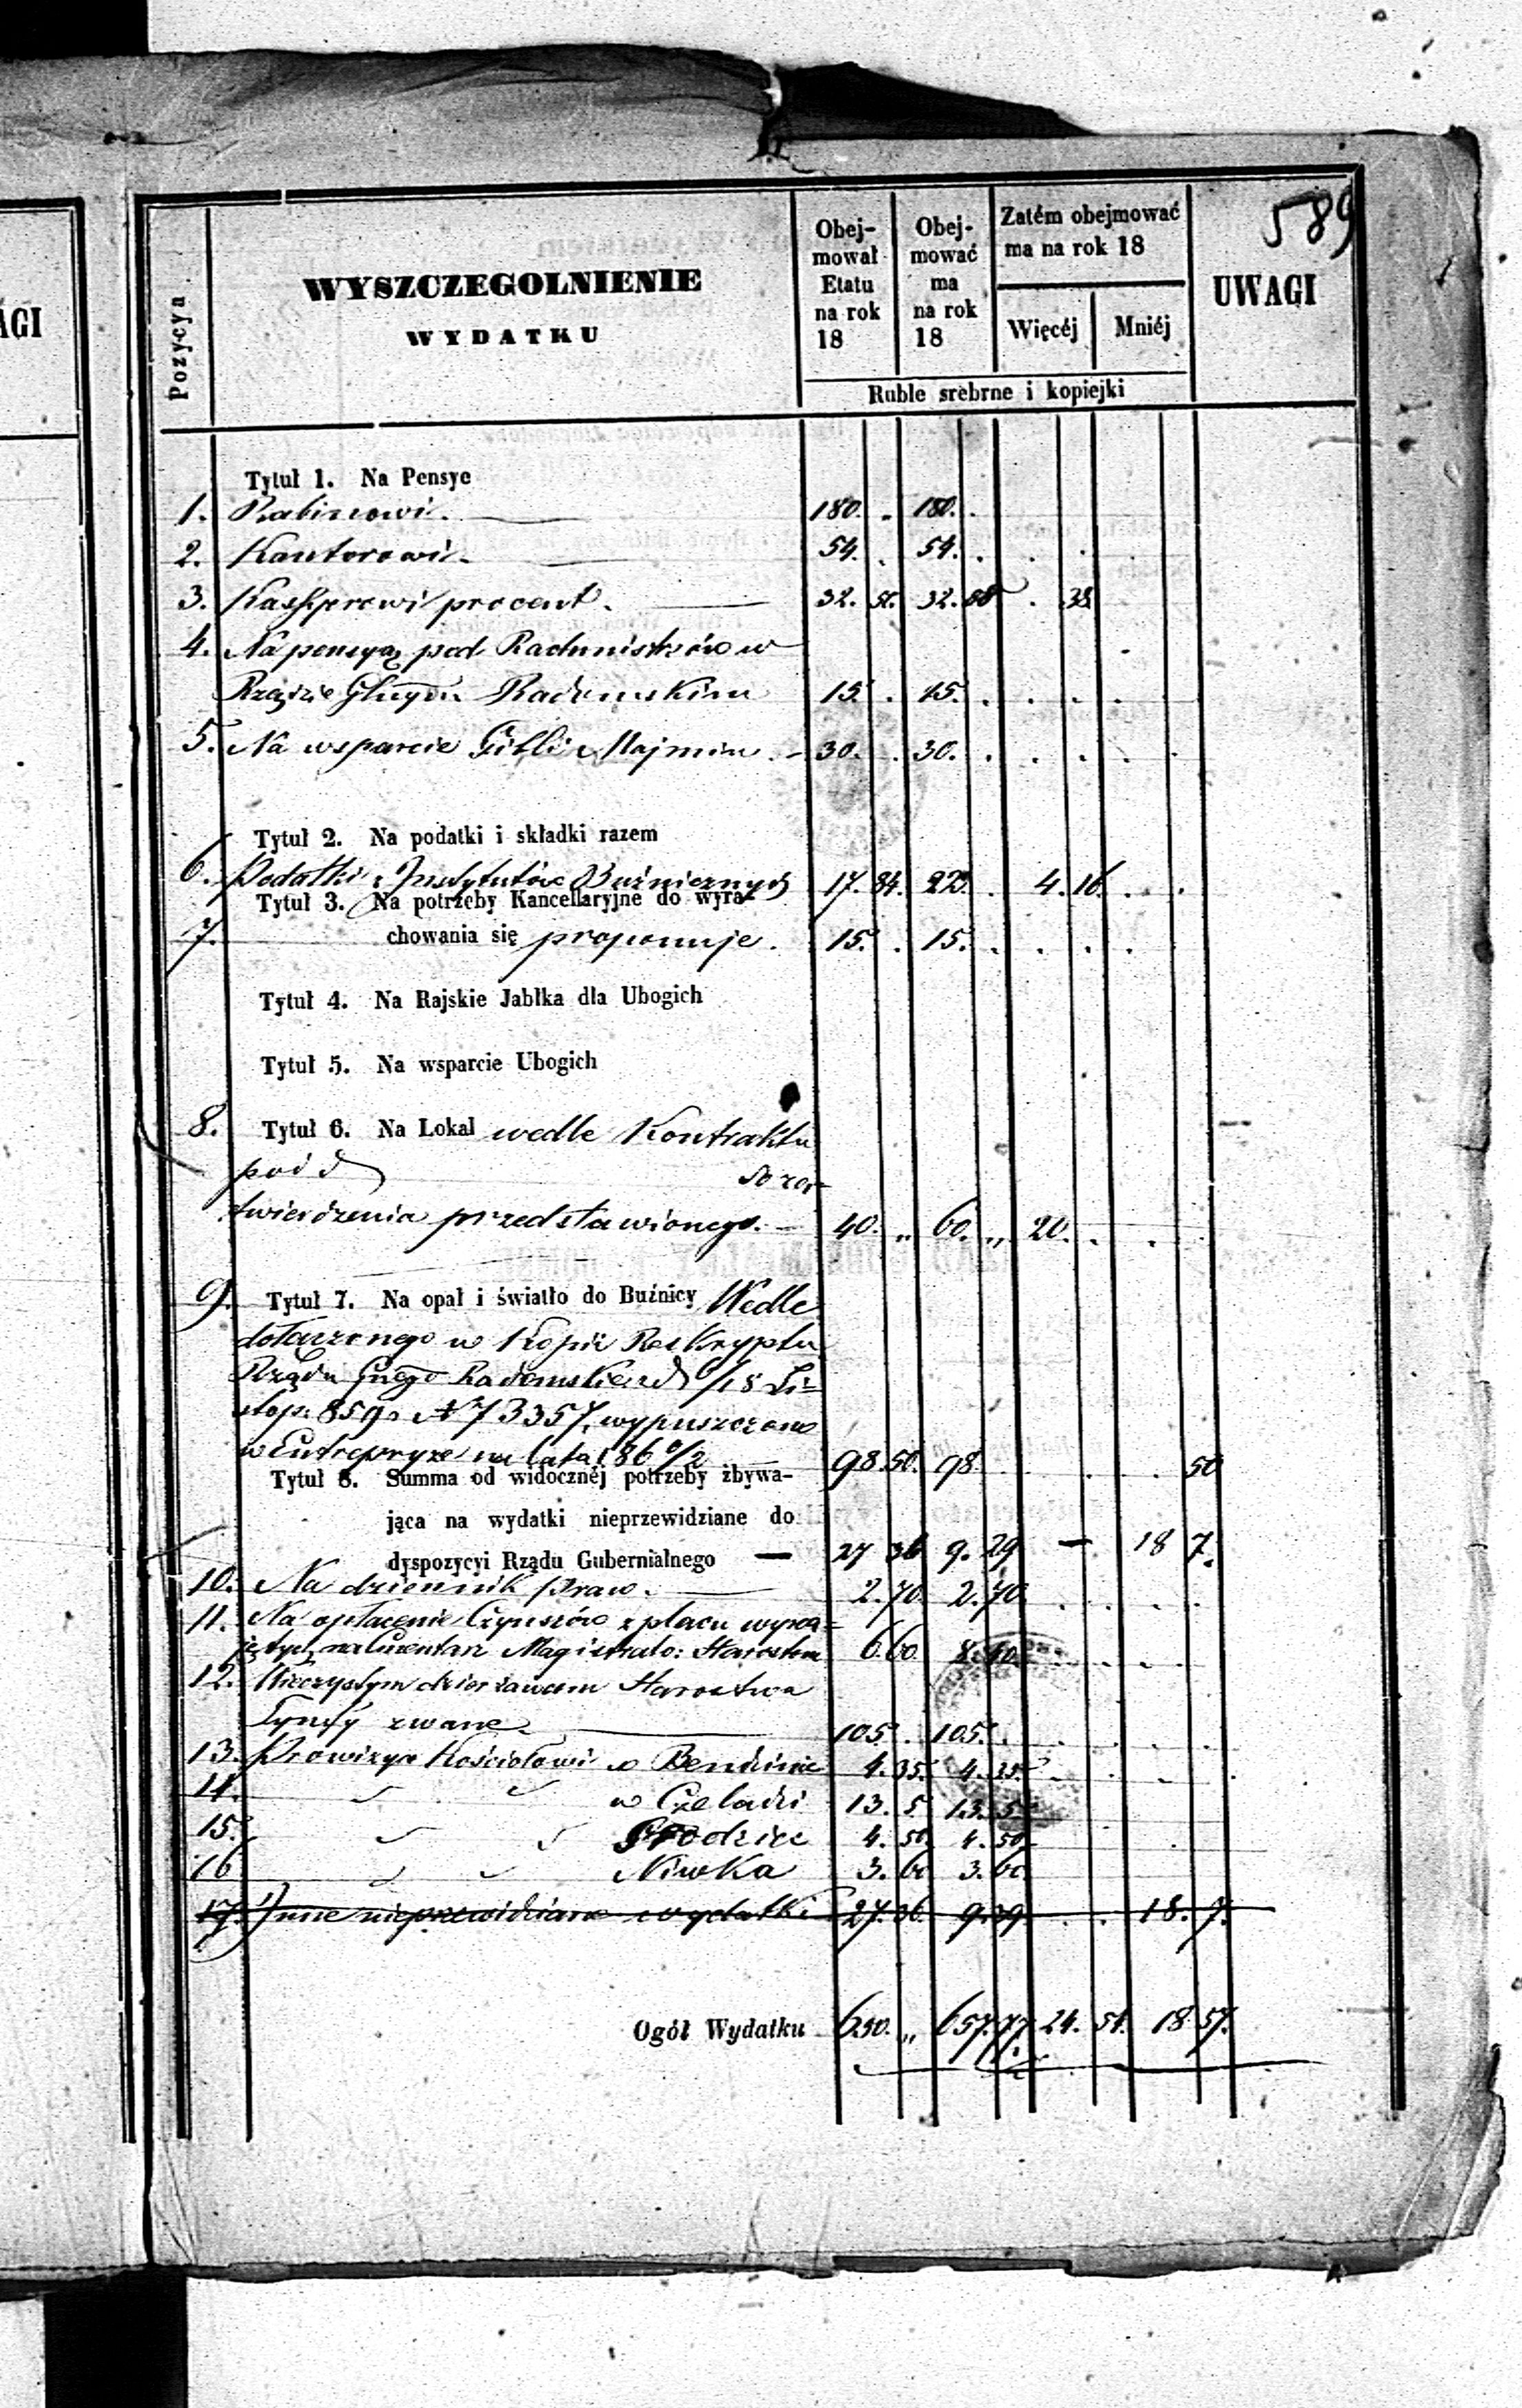 589
AGI
Pozycya
WYSZCZEGOLNIENIE
WYDATKU
Obej-
mował
Etatu
na rok
18
Obej-
mować
ma
na rok
18
Zatém obejmować
ma na rok 18
Więcéj
Mniéj
UWAGI
Ruble srebrne i kopiejki
Tytuł 1. Na Pensye
1. Rabinowi. 180. . 180. .
2. Kantorowi. 54. . 54. . . .
3. Kassyerowi procent. 32. 32. 38
4. Na pensyą pod Rachmistrzów w
Rządzie Gbnym Radomskim 15. . 15. . . . .
5. Na wsparcie Majmin. 30. . 30. . . . .
Tytuł 2. Na podatki i składki razem
6. Podatki z Instytutów Buźnicznych 17. 84. 22. . 4. 16. . .
Tytuł 3. Na potrzeby Kancellaryjne do wyra-
7. chowania się proponuje. 15. . 15. . . . .
Tytuł 4. Na Rajskie Jabłka dla Ubogich
Tytuł 5. Na wsparcie Ubogich
8. Tytuł 6. Na Lokal wedle Kontraktu
pod do za-
twierdzenia przedstawionego. 40. „ 60. „ 20. . .
9. Tytuł 7. Na opał i światło do Buźnicy Wedle
dołączonego w Kopii Reskryptu
Rządu Gnego Radomskiego d 6/18 Li-
stop. 859 r. N 73357, wypuszczone
w Entrepryze na lata 186 0/2 98. 50. 98. . . . 50
Tytuł 8. Summa od widocznéj potrzeby zbywa-
jąca na wydatki nieprzewidziane do
dyspozycyi Rządu Gubernialnego — 27 36 9. 29 — 18 7.
10. Na dziennik praw. 2. 70. 2. 70. . . .
11. Na opłacenie Czynszów z placu wyna-
jętych na Cmentarz Magistrato: Starostwa 6. 60. 8. 40. . . .
12. Wieczystym dzierżawcom Starostwa
zwane 105. . 105. .
13. Prowizya Kościołowi w Bendzinie 4. 35. 4. 35. . . . .
14. w Czeladzi 13. 5 13. 5.
15. Grodziec 4. 50. 4. 50.
16 Niwka 3. 60 3. 60.
17. Inne nieprzewidziane wydatki 27. 36. 9. 39. . . 18. 7.
Ogół Wydatku 650. „ 657. 77. 24. 54. 18 57.